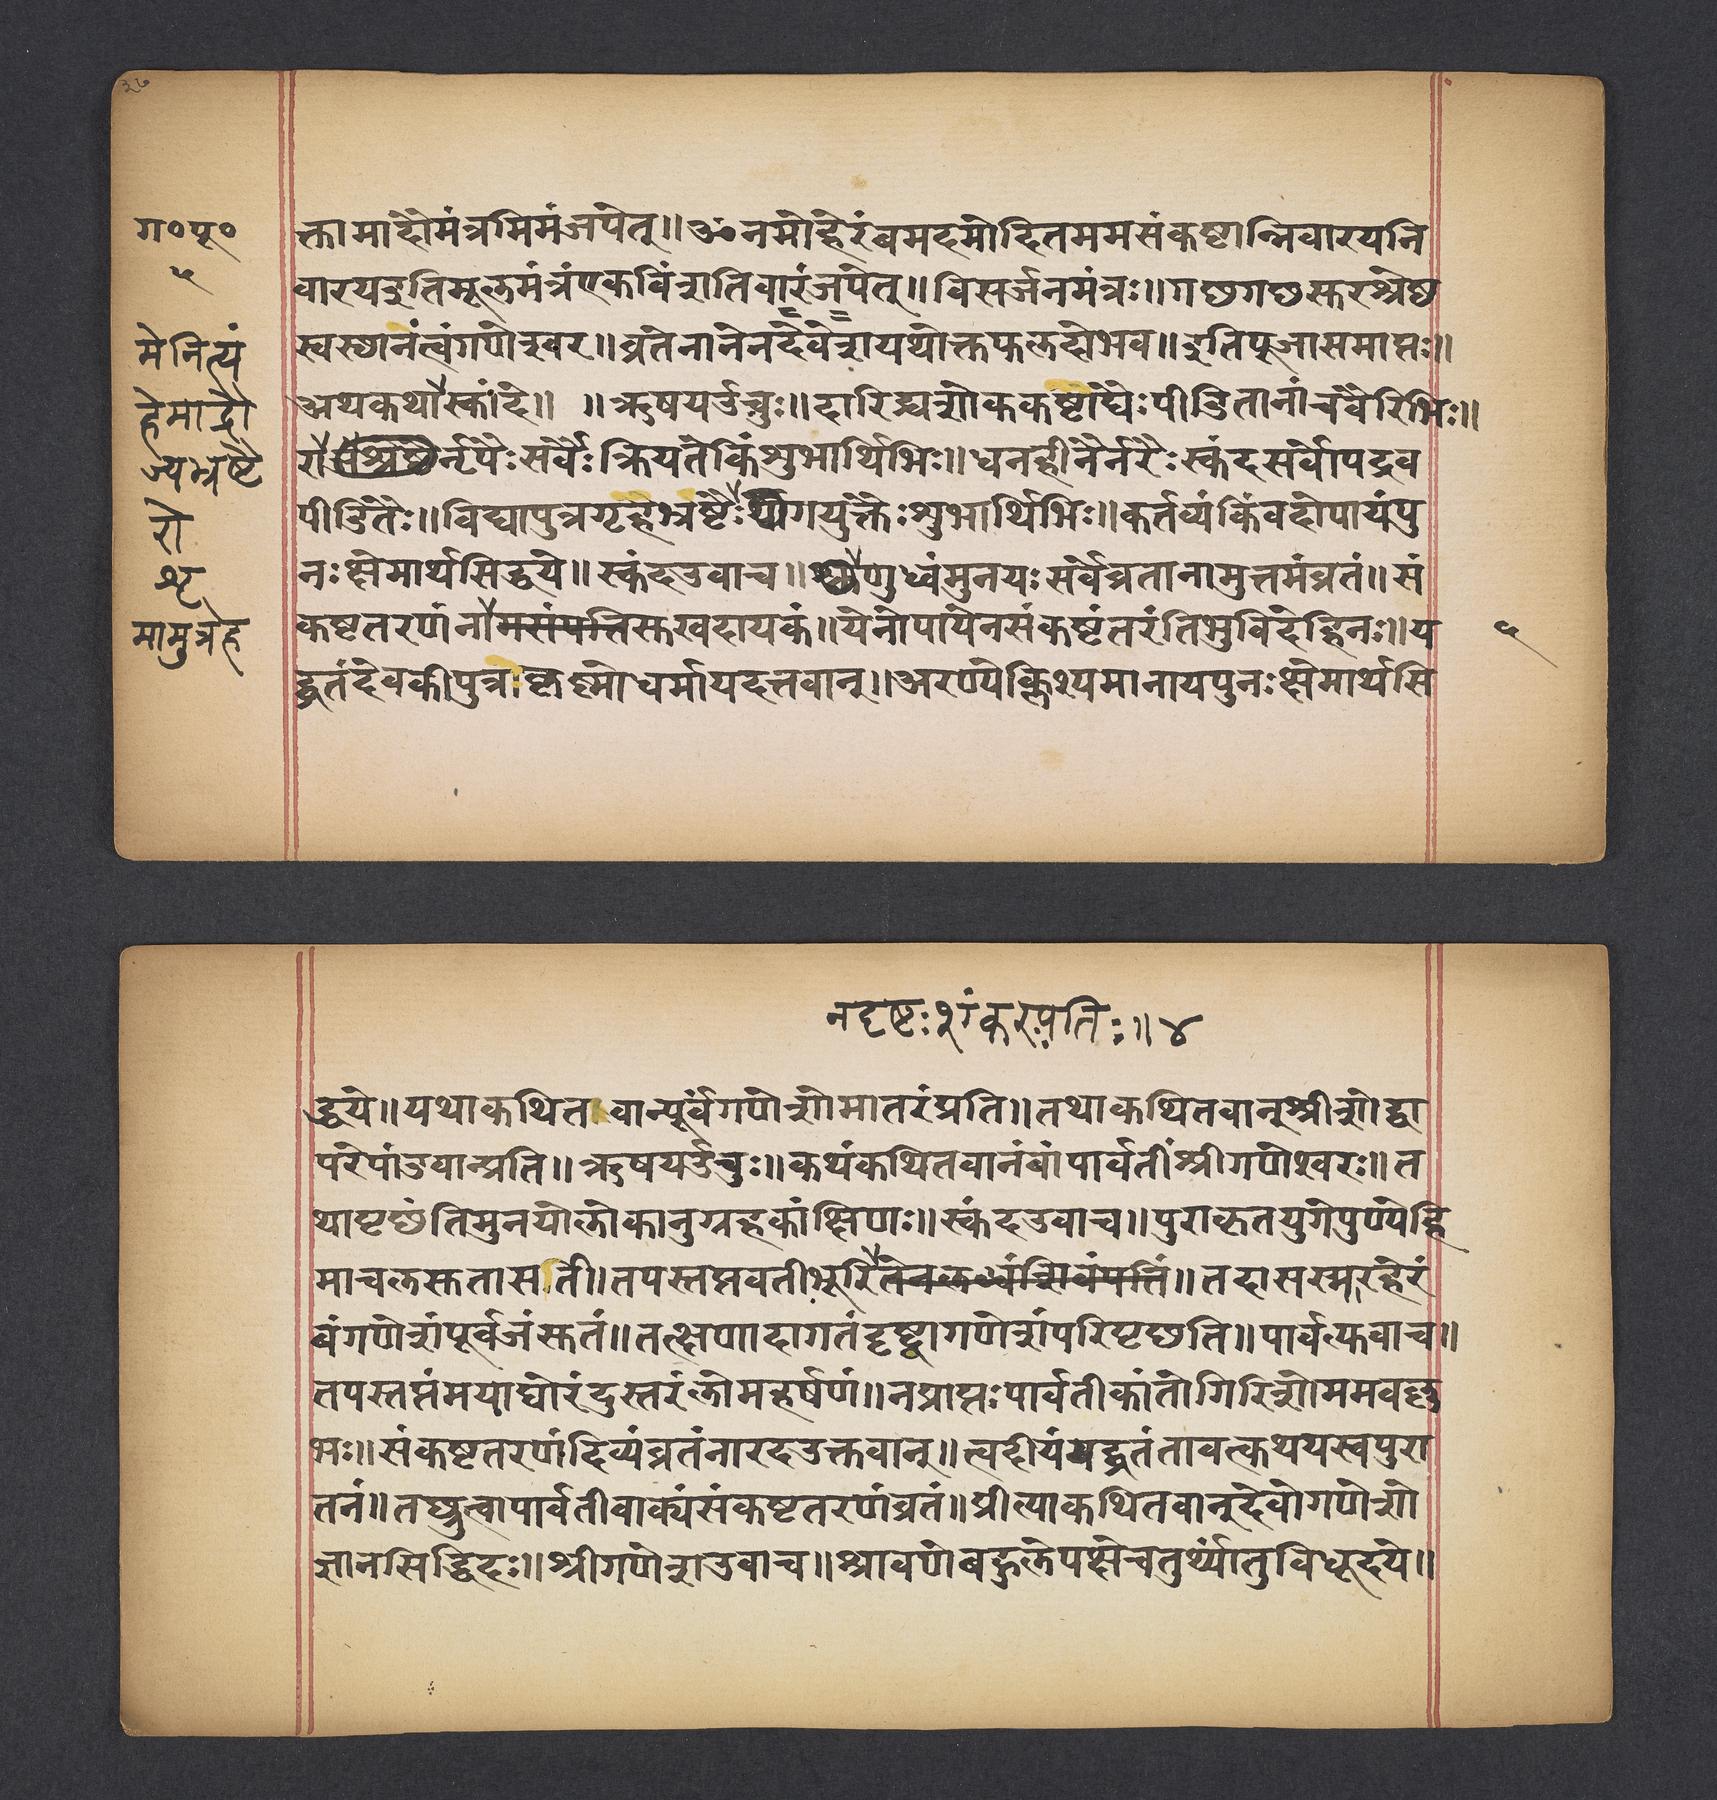 ३७
ग०पू०
५
मे नित्यं
हेमाद्रौ
ज्यभ्रष्टै
रो
शृ
मामुत्रेह
क्तामादौमंत्रमिमंजपेत्॥ॐनमोहेरंबमदमोहितममसंकष्टान्निवारयनि
वारयइतिमूलमंत्रंएकविंशतिवारंजपेत्॥विसर्जनमंत्रः॥गछगछसुरश्रेष्ठ
स्वस्थानंत्वंगणेश्वर॥व्रतेनानेनदेवेशयथोक्तफलदोभव॥इतिपूजासमाप्तः॥
अथकथास्कांदे॥ ॥ऋषयऊचुः॥दारिद्र्यशोककष्टाद्यैःपीडितानांचवैरिभिः॥
रार्नृपैःसर्वैःक्रियतेकिंशुभार्थिभिः॥धनहीनैर्नरैःस्कंदसर्वोपद्रव
पीडितैः॥विद्यापुत्रगृहैभ्रष्टैःगयुक्तैःशुभार्थिभिः॥कर्तव्यंकिंवदोपायंपु
नःक्षेमार्थसिद्धये॥स्कंदउवाच॥णुध्वंमुनयःसर्वेव्रतानामुत्तमंव्रतं॥सं
कष्टतरणंनामसंपत्तिसुखदायकं॥येनोपायेनसंकष्टंतरंतिभुविदेहिनः॥य
५
द्व्रतंदेवकीपुत्रःकृष्णोधर्मायदत्तवान्॥अरण्येक्लिश्यमानायपुनःक्षेमार्थसि
नदृष्टःशंकरःपतिः॥४
द्धये॥यथाकथितवान्पूर्वंगणेशोमातरंप्रति॥तथाकथितवान्श्रीशोद्वा
परेपांडवान्प्रति॥ऋषयऊचुः॥कथंकथितवानंबांपार्वतींश्रीगणेश्वरः॥त
थापृछंतिमुनयोलोकानुग्रहकांक्षिणः॥स्कंदउवाच॥पुराकृतयुगेपुण्येहि
माचलसुतासती॥तपस्तप्तवतीभूरितेनलब्धंशिवंपतिं॥तदासस्मरहेरं
बंगणेशंपूर्वजंसुतं॥तत्क्षणादागतंदृष्ट्वागणेशंपरिपृछति॥पार्वत्युवाच॥
तपस्तप्तंमयाघोरंदुस्तरंलोमहर्षणं॥नप्राप्तःपार्वतीकांतोगिरिशोममवल्ल
भः॥संकष्टतरणंदिव्यंव्रतंनारदउक्तवान्॥त्वदीयंयद्व्रतंतावत्कथयस्वपुरा
तनं॥तछ्रुत्वापार्वतीवाक्यंसंकष्टतरणंव्रतं॥प्रीत्याकथितवान्देवोगणेशो
ज्ञानसिद्धिदः॥श्रीगणेशउवाच॥श्रावणेबहुलेपक्षेचतुर्थ्यांतुविधूदये॥